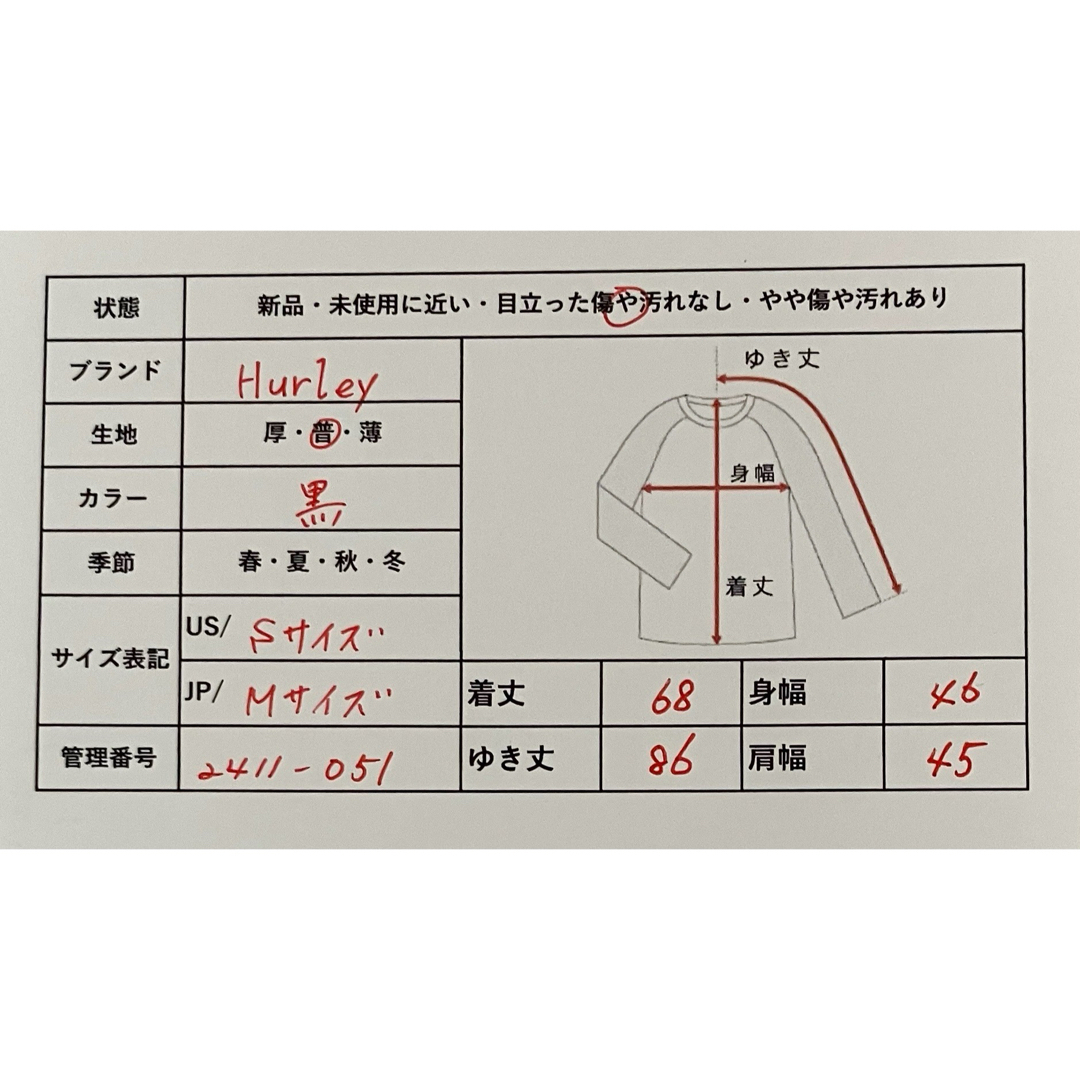 状態 新品・未使用に近い・目立った傷や汚れなし・やや傷や汚れあり
ブランド Hurley
生地 厚・普・薄
カラー 黒
季節 春・夏・秋・冬
サイズ表記
US/ Sサイズ
JP/ Mサイズ
管理番号 2411-051
ゆき丈
身幅
着丈
着丈 68 身幅 46
ゆき丈 86 肩幅 45